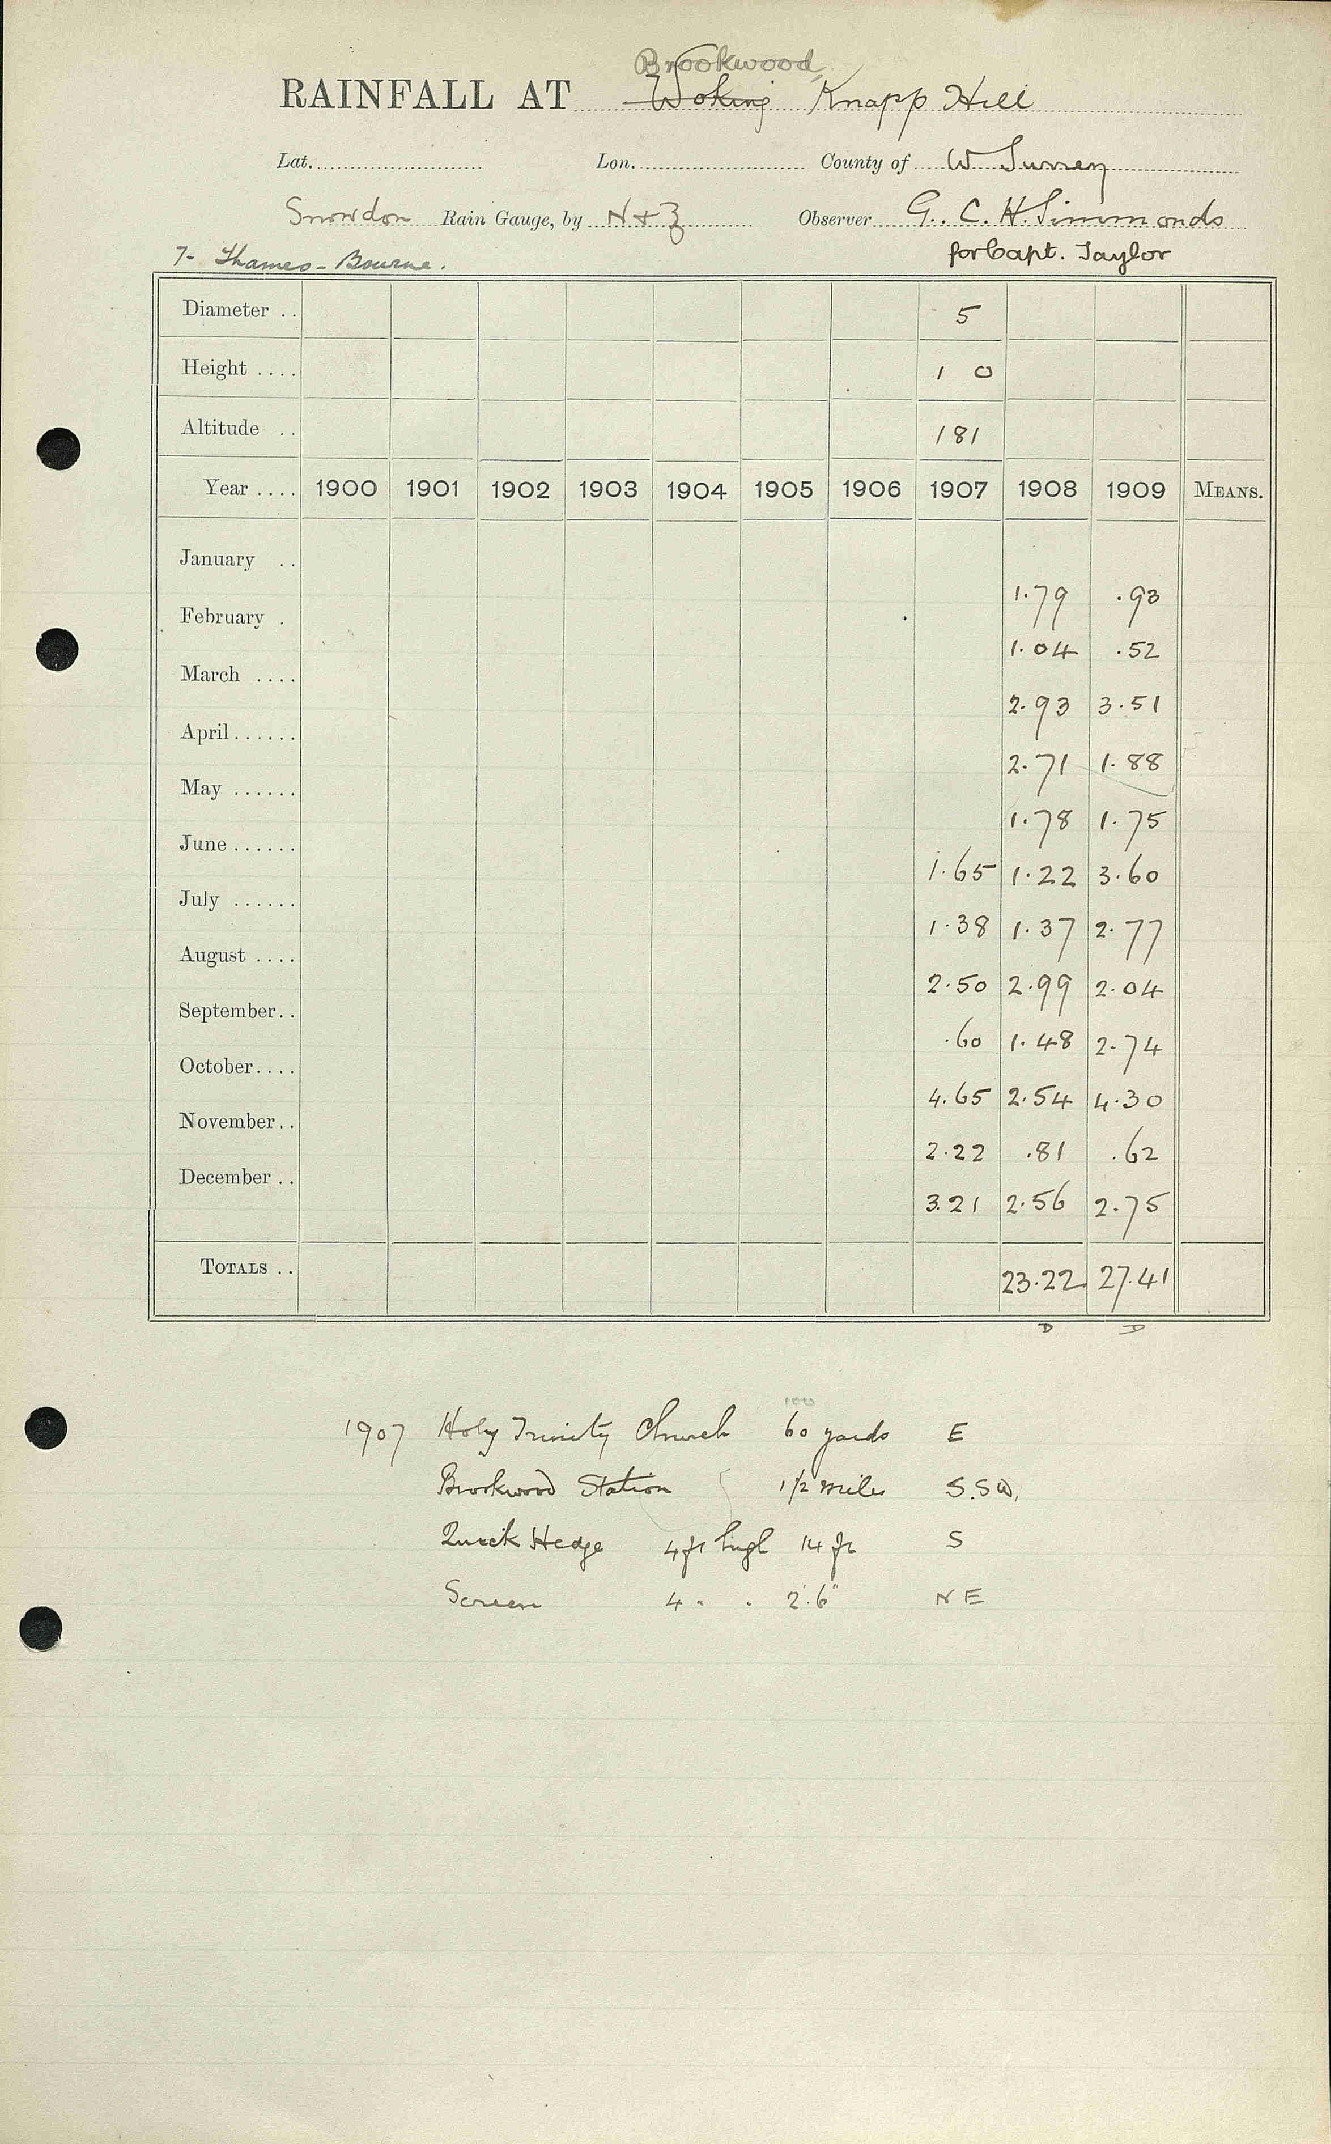 Brookwood
RAINFALL AT Woking Knapp Hill
Lat. Lon. County of W Surrey
Snowdon Rain Gauge, by N & Z Observer G. C. H. Simmonds
7- Thames - Bourne. for Capt. Taylor
Diameter .. 5
Height .... 1 0
Altitude .. 181
Year .... 1900 1901 1902 1903 1904 1905 1906 1907 1908 1909 MEANS.
January ..
1.79 .93
February .
1.04 .52
March ....
2.93 3.51
April ......
2.71 1.88
May ......
1.78 1.75
June ......
1.65 1.22 3.60
July ......
1.38 1.37 2.77
August ....
2.50 2.99 2.04
September..
.60 1.48 2.74
October....
4.65 2.54 4.30
November..
2.22 .81 .62
December ..
3.21 2.56 2.75
TOTALS .. 23.22 27.41
D D
100
1907 Holy Trinity Church 60 yards E
Brookwood Station 1 1/2 miles S.SW.
Quick Hedge 4 ft high 14 ft S
Screen 4 " " 2'.6" NE